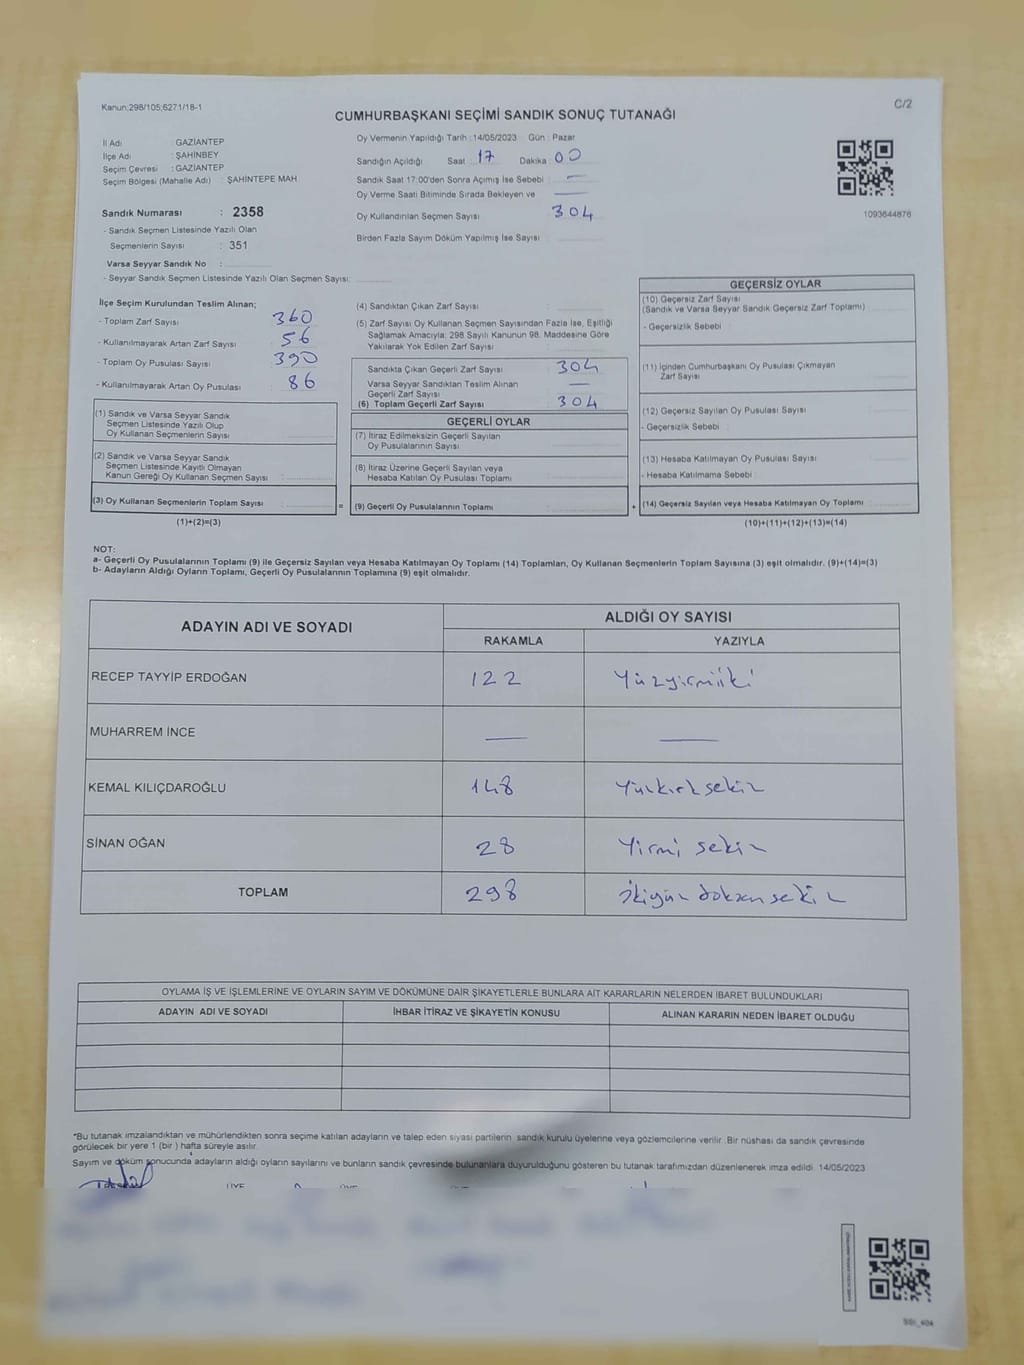 Kanun:298/105;6271/18-1
C/2
CUMHURBAŞKANI SEÇİMİ SANDIK SONUÇ TUTANAĞI
İl Adı : GAZİANTEP
İlçe Adı : ŞAHİNBEY
Seçim Çevresi : GAZİANTEP
Seçim Bölgesi (Mahalle Adı) : ŞAHİNTEPE MAH
Sandık Numarası : 2358
- Sandık Seçmen Listesinde Yazılı Olan
Seçmenlerin Sayısı : 351
Varsa Seyyar Sandık No :
- Seyyar Sandık Seçmen Listesinde Yazılı Olan Seçmen Sayısı:
Oy Vermenin Yapıldığı Tarih :14/05/2023 Gün : Pazar
Sandığın Açıldığı Saat 17 Dakika : 00
Sandık Saat 17:00'den Sonra Açımış İse Sebebi : —
Oy Verme Saati Bitiminde Sırada Bekleyen ve —
Oy Kullandırılan Seçmen Sayısı 304
Birden Fazla Sayım Döküm Yapılmış İse Sayısı :
1093644876
İlçe Seçim Kurulundan Teslim Alınan;
- Toplam Zarf Sayısı 360
- Kullanılmayarak Artan Zarf Sayısı 56
- Toplam Oy Pusulası Sayısı 390
- Kullanılmayarak Artan Oy Pusulası 86
(1) Sandık ve Varsa Seyyar Sandık
Seçmen Listesinde Yazılı Olup
Oy Kullanan Seçmenlerin Sayısı
(2) Sandık ve Varsa Seyyar Sandık
Seçmen Listesinde Kayıtlı Olmayan
Kanun Gereği Oy Kullanan Seçmen Sayısı
(3) Oy Kullanan Seçmenlerin Toplam Sayısı
(1)+(2)=(3)
(4) Sandıktan Çıkan Zarf Sayısı
(5) Zarf Sayısı Oy Kullanan Seçmen Sayısından Fazla İse, Eşitliği
Sağlamak Amacıyla; 298 Sayılı Kanunun 98. Maddesine Göre
Yakılarak Yok Edilen Zarf Sayısı
Sandıkta Çıkan Geçerli Zarf Sayısı 304
Varsa Seyyar Sandıktan Teslim Alınan
Geçerli Zarf Sayısı —
(6) Toplam Geçerli Zarf Sayısı 304
GEÇERLİ OYLAR
(7) İtiraz Edilmeksizin Geçerli Sayılan
Oy Pusulalarının Sayısı
(8) İtiraz Üzerine Geçerli Sayılan veya
Hesaba Katılan Oy Pusulası Toplamı
= (9) Geçerli Oy Pusulalarının Toplamı
GEÇERSİZ OYLAR
(10) Geçersiz Zarf Sayısı
(Sandık ve Varsa Seyyar Sandık Geçersiz Zarf Toplamı)
- Geçersizlik Sebebi
(11) İçinden Cumhurbaşkanı Oy Pusulası Çıkmayan
Zarf Sayısı
(12) Geçersiz Sayılan Oy Pusulası Sayısı
- Geçersizlik Sebebi
(13) Hesaba Katılmayan Oy Pusulası Sayısı
- Hesaba Katılmama Sebebi
+ (14) Geçersiz Sayılan veya Hesaba Katılmayan Oy Toplamı
(10)+(11)+(12)+(13)=(14)
NOT:
a- Geçerli Oy Pusulalarının Toplamı (9) ile Geçersiz Sayılan veya Hesaba Katılmayan Oy Toplamı (14) Toplamları, Oy Kullanan Seçmenlerin Toplam Sayısına (3) eşit olmalıdır. (9)+(14)=(3)
b- Adayların Aldığı Oyların Toplamı, Geçerli Oy Pusulalarının Toplamına (9) eşit olmalıdır.
ADAYIN ADI VE SOYADI
ALDIĞI OY SAYISI
RAKAMLA YAZIYLA
RECEP TAYYİP ERDOĞAN 122 Yüzyirmiiki
MUHARREM İNCE — —
KEMAL KILIÇDAROĞLU 148 Yüzkırksekiz
SİNAN OĞAN 28 Yirmi sekiz
TOPLAM 298 İkiyüz doksan sekiz
OYLAMA İŞ VE İŞLEMLERİNE VE OYLARIN SAYIM VE DÖKÜMÜNE DAİR ŞİKAYETLERLE BUNLARA AİT KARARLARIN NELERDEN İBARET BULUNDUKLARI
ADAYIN ADI VE SOYADI İHBAR İTİRAZ VE ŞİKAYETİN KONUSU ALINAN KARARIN NEDEN İBARET OLDUĞU
*Bu tutanak imzalandıktan ve mühürlendikten sonra seçime katılan adayların ve talep eden siyasi partilerin sandık kurulu üyelerine veya gözlemcilerine verilir. Bir nüshası da sandık çevresinde
görülecek bir yere 1 (bir ) hafta süreyle asılır.
Sayım ve döküm sonucunda adayların aldığı oyların sayılarını ve bunların sandık çevresinde bulunanlara duyurulduğunu gösteren bu tutanak tarafımızdan düzenlenerek imza edildi. 14/05/2023